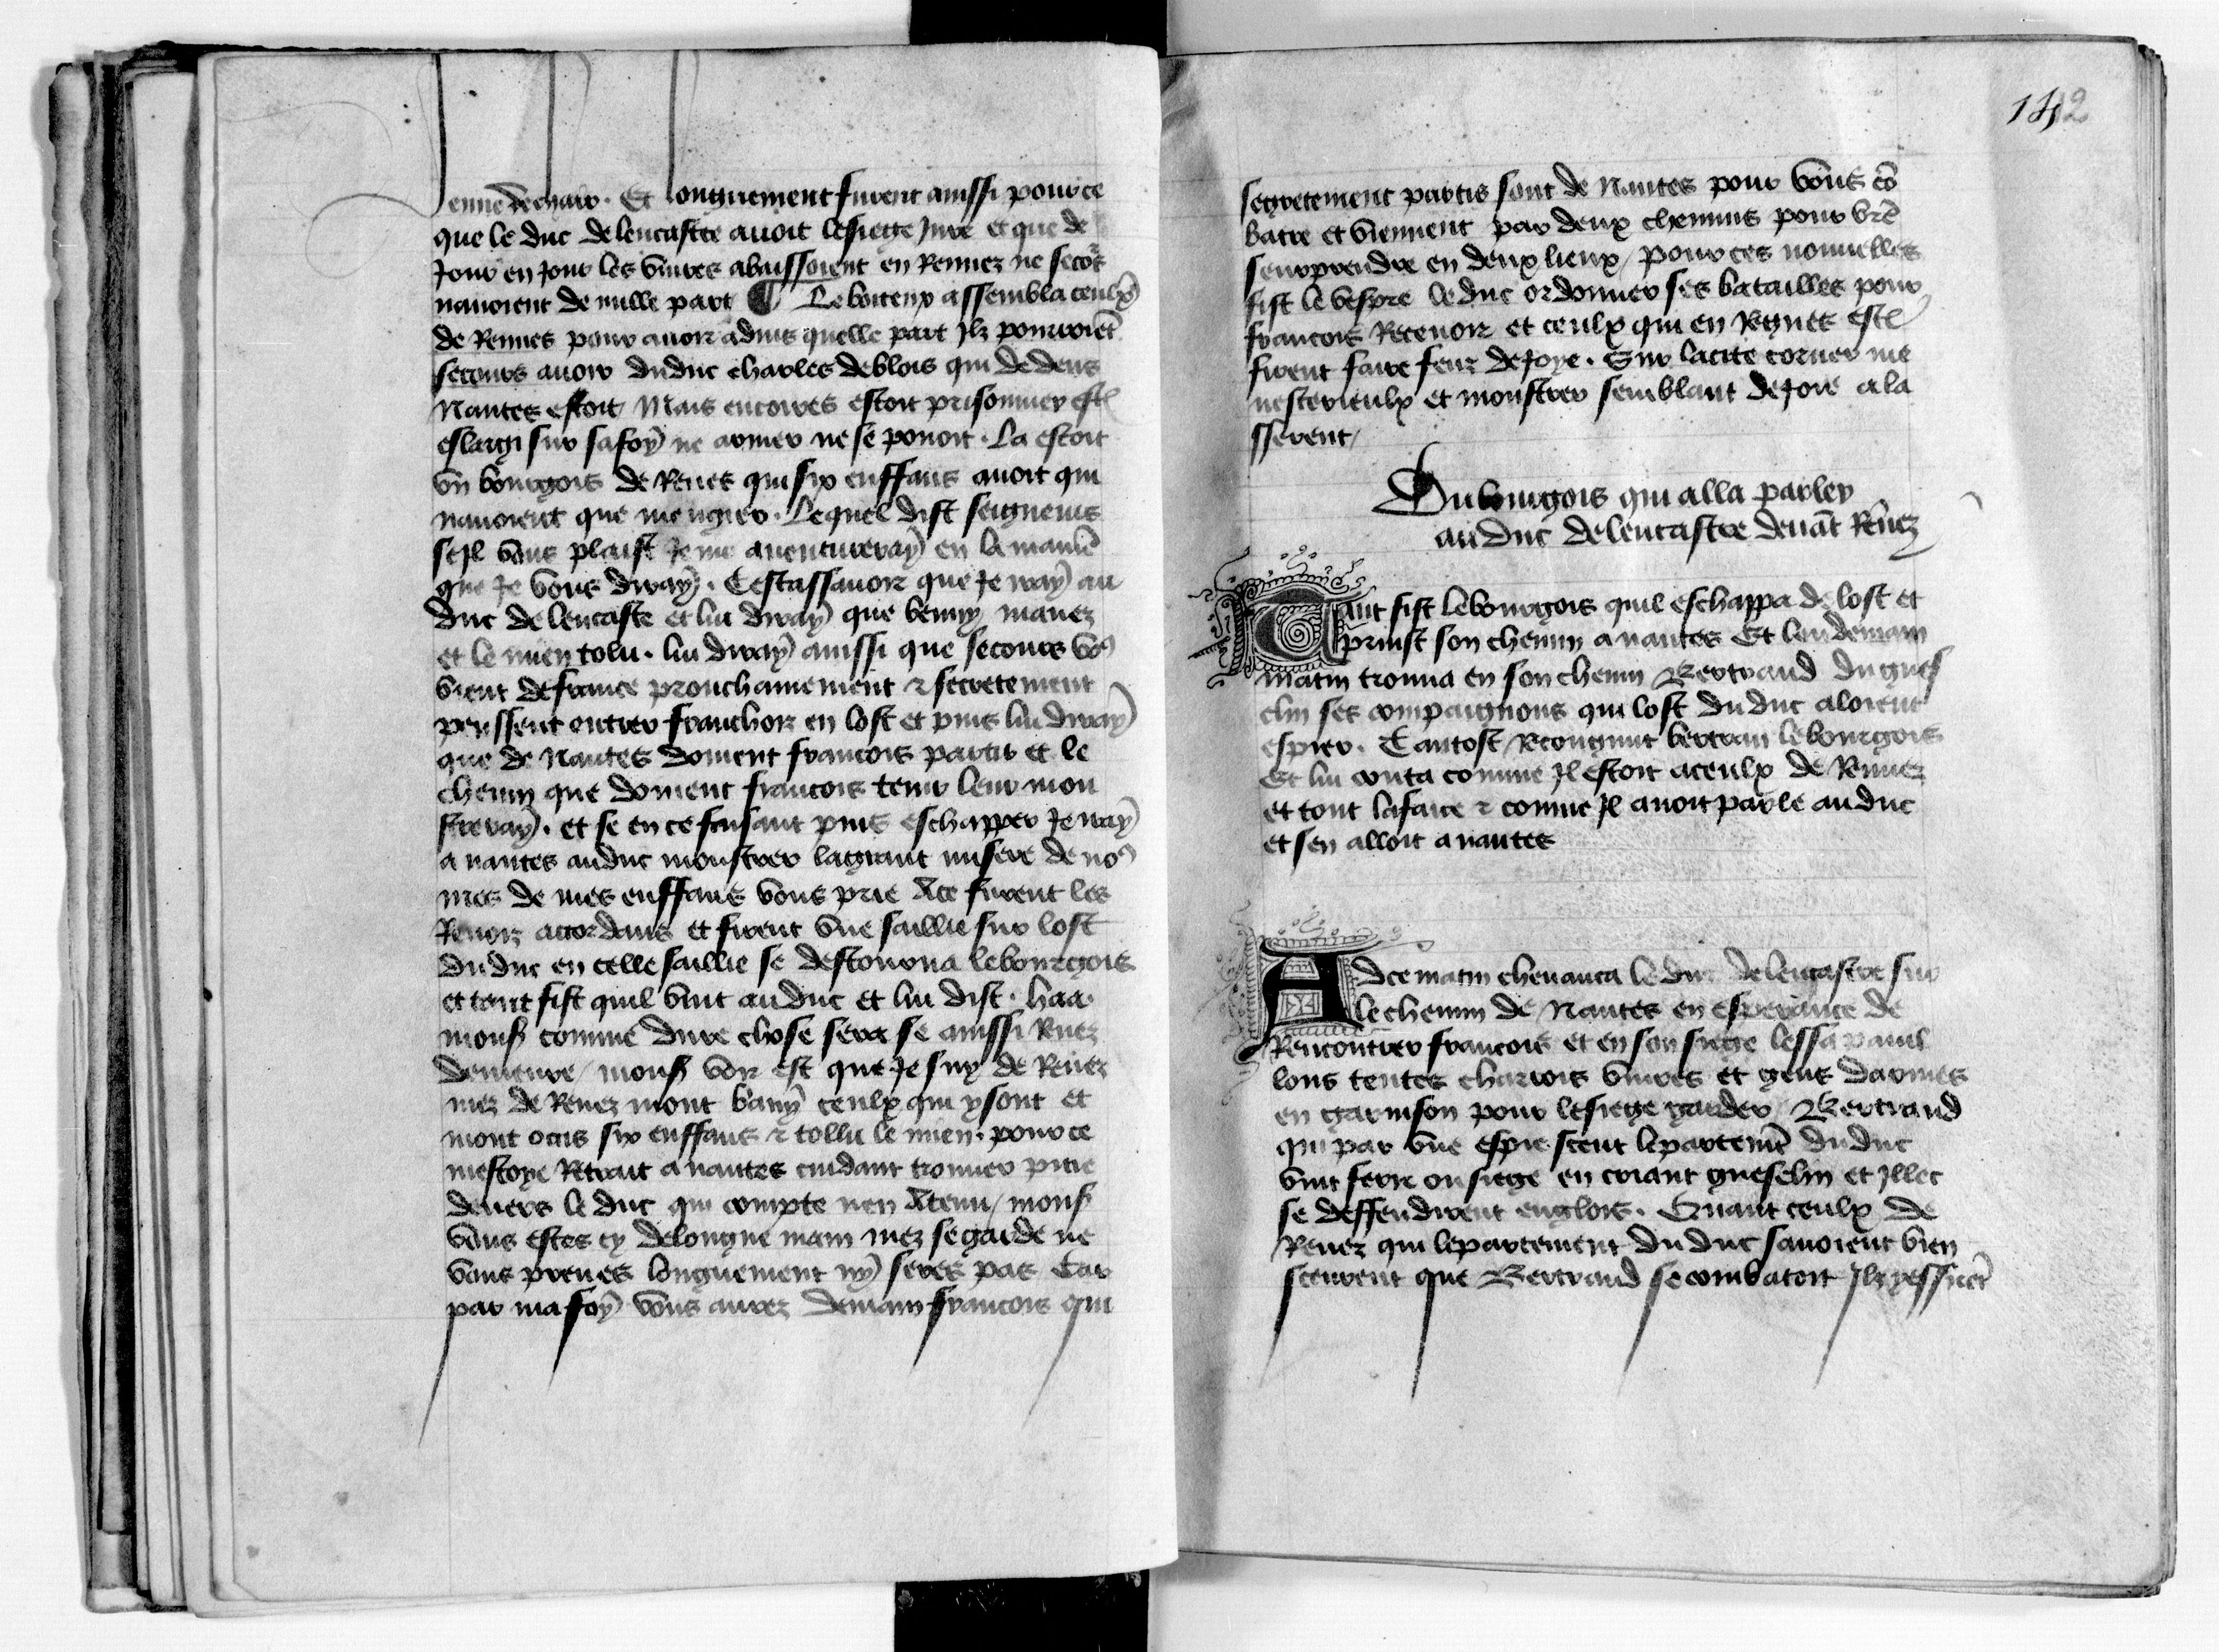 Longuement furent aussi pource
que le duc de lencastre auoit le siege Jure et que de
Jour en Jour les viures abaissoient en Rennez ne secors
nauoient de nulle part ¶ Le boiteux assembla ceulx
de Rennes pour auoir aduis quelle part Jlz pourroiẽt
secours auoir du duc charles de blois qui dedens
Nantes estoit Mais encores estoit prisonnier
eslargi sur sa foy ne armer ne se pouoit . La estoit
vn bourgois de Renes qui six enffans auoit qui
nauoient que mengier . Lequel dist seigneurs
seJl vous plaist Je me auentureray en la maniẽ
que Je vous diray . Cestassauoir que Je iray au
duc de lencastre et lui diray que banny mauez
et le mien tolu . lui diray aussi que secours vꝰ
vient de france prouchainement & secretement
peussent entrer franchoiz en lost et puis lui diray
que de Nantes doiuent francois partir et le
chemin que doiuent francois tenir leur mon
streray . et se en ce faisant puis eschapper Je iray
a nantes au duc monstrer la grant misere de noꝰ
mes de mes enffans vous prie Ace furent les
Renoiz accordans et firent vne saillie sur lost
du duc en celle saillie se destourna le bourgois
et tant fist quil vint au duc et lui dist . haa .
monsʳ comme dure chose sera se aussi Renez
demeure / monsʳ voir est que Je suy de Renez
mez de Renez mont bany ceulx qui y sont et
mont ocis six enffans & tollu le mien . pource
mestoye Retrait a nantes cuidant trouuer pitie
deuers le duc qui compte nen A tenu / monsʳ
vous estes cy de longue main mez se garde ne
vous prenes longuement ny seres pas Car
par ma foy vous aurez demain francois qui
142
segretement partis sont de Nantes pour vous cõ
batre et viennent par deux chemins pour vrẽ
seurprendre en deux lieux / pour ces nouuelles
fist le vespre le duc ordonner ses batailles pour
francois Receuoir et ceulx qui en Regnes
firent faire feuz de Joye . Sur la cite corner me
nesterieulx et monstrer semblant de Joie a la
sserent /
Du bourgois qui alla parler
au duc de lencastre deuãt Rẽnez
Tant fist le bourgois quil eschappa de lost et
prinst son chemin a nantes Et lendemain
matin trouua en son chemin Bertrand du gues
clin ses compaignons qui lost du duc aloient
espier . Tantost Recongnut bertran le bourgois
Et lui conta comme Jl estoit a ceulx de Rennez
et tout lafaire & comme Jl auoit parle au duc
et sen alloit a nantes
Adce matin cheuauca le duc de lencastre sur
le chemin de Nantes en esperance de
Rencontrer francois et en son siege lessa pauil
lons tentes charrois viures et gens darmes
en garnison pour le siege garder / Bertrand
qui par vne espie sceut le partemẽt du duc
vint ferir ou siege en criant gueselin et Jllec
se deffendirent englois . Quant ceulx de
Renez qui le partement du duc sauoient bien
sceurent que Bertrand se combatoit Jlz yssirẽt